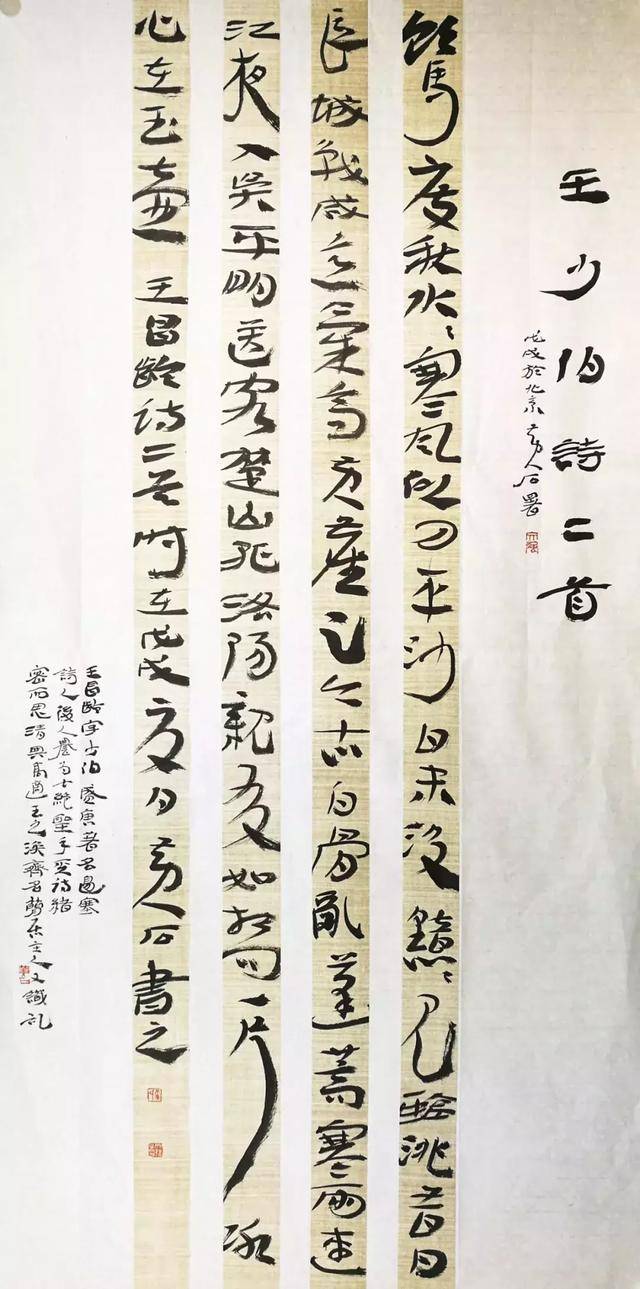 王少伯詩二首
戊戌於北京黄石署
飲馬度秋水〻寒風似刀平沙日未没黯〻見臨洮昔日
長城戰咸言意氣高黄塵足今古白骨亂蓬蒿寒雨連
江夜入吴平明送客楚山孤洛陽親友如相問一片冰
心在玉壶 王昌龄诗二首时在戊戌夏月黄石書之
王昌龄字少伯盛唐著名邊塞
詩人後人譽为七绝聖手其诗绪
密而思清與高適王之涣齊名居主人又識記